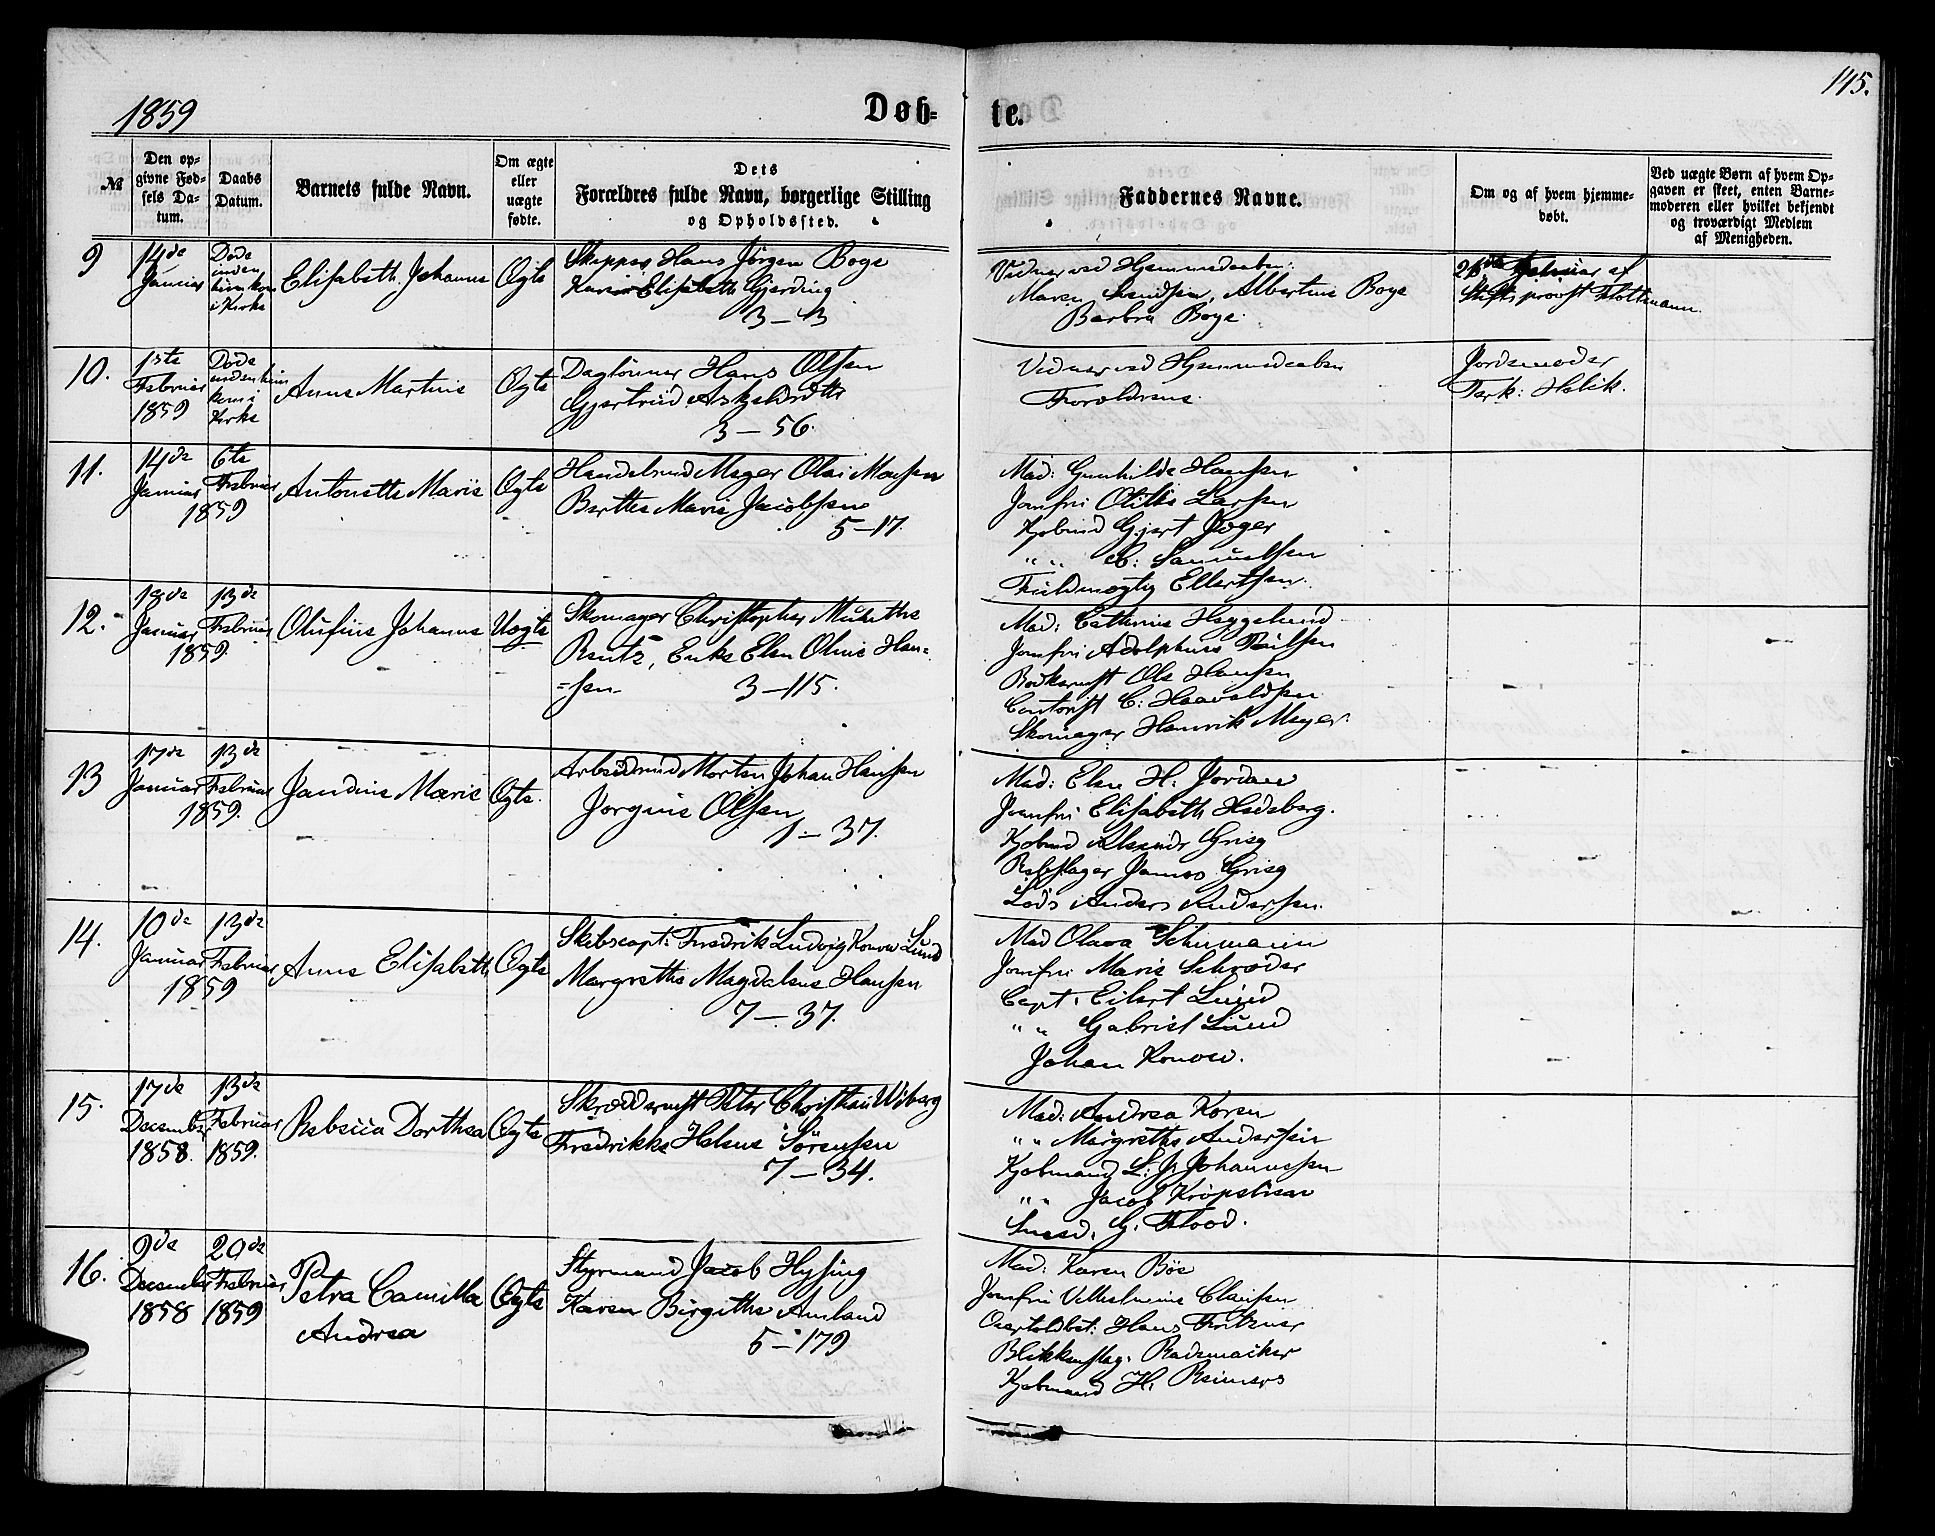 1859
Døb-
te.
145.
№
Den op-
givne Fød-
sels Da-
tum.
Daabs
Datum.
Barnets fulde Navn.
Om ægte
eller
uægte
fødte.
Dets
Forældres fulde Navn, borgerlige Stilling
og Opholdssted.
Faddernes Navne.
Om og af hvem hjemme-
døbt.
Ved uægte Børn af hvem Op-
gaven er skeet, enten Barne-
moderen eller hvilket bekjendt
og troværdigt Medlem
af Menigheden.
9
14de
Januar
Døde
inden
i Kirke
Elisabeth Johanne
Ægte
Skipper Hans Jørgen Boge
Elisabeth Gjerding
3 – 3
Vidner ved Hjemmedaaben:
Maren, Albertine Boge
Barbra Boge
Februar af
Stiftsprovst
10.
1ste
Februar
1859
Døde
inden
Kirke
Anne Martine
Ægte
Daglønner Hans Olsen
Gjertrud
3 – 56.
Vidner ved Hjemmedaaben
Forældrene
Jordemoder
11.
14de
Januar
6te
Februar
1859
Antonette Marie
Ægte
Meyer Olai Monsen
Berthe Marie Jacobsen
5 – 17.
Mad: Gunhilde Hansen
Jomfru Larsen
Kjøbmd Gjert Jæger
" " Samuelsen
Fuldmægtig Ellertsen.
12.
18de
Januar
13de
Februar
1859
Olufine Johanne
Uægte
Skomager Christopher
Rentz, Enke Elen Oline Han-
-sen
3 – 115.
Mad: Cathrine Heggelund
Jomfru Paulsen
Ole Hansen
C: Haavaldsen
Skomager Henrik Meyer.
13
17de
Januar
13de
Februar
1859.
Jandine Marie
Ægte.
Arbeidsmd Morten Johan Hansen
Jørgine Olsen
1 – 37.
Mad: Elen H: Jordan
Jomfru Elisabeth
Kjøbmd Grieg
Rebslager James Grieg
Lods Anders Andersen.
14.
10de
Januar
13de
Februar
1859
Anne Elisabeth
Ægte
Skibscapt: Fredrik Ludvig Konow Lund
Margrethe Magdalene Hansen
7 – 37.
Mad Olava Schumann
Jomfru Marie Schrøder
Capt. Eilert Lund
" " Gabriel Lund
Johan Konow.
15.
17de
December
1858.
13de
Februar
1859.
Rebecca Dorthea
Ægte
Skræddermst Peter Christian Wiberg
Fredrikke Helene Sørensen
7 – 34.
Mad: Andrea Koren
" " Margrethe Andersen
Kjøbmand L: J: Johannesen
" " Jacob
G. Flood.
16.
9de
December
1858
20de
Februar
1859
Petra Camilla
Andrea
Ægte
Styrmand Jacob Hysing
Karen Birgithe Amland
5 – 179
Mad: Karen Bøe
Jomfru Vilhelmine Clausen
Hans Fritzner
Blikkenslag. Rademacker
Kjøbmand H: Reimers